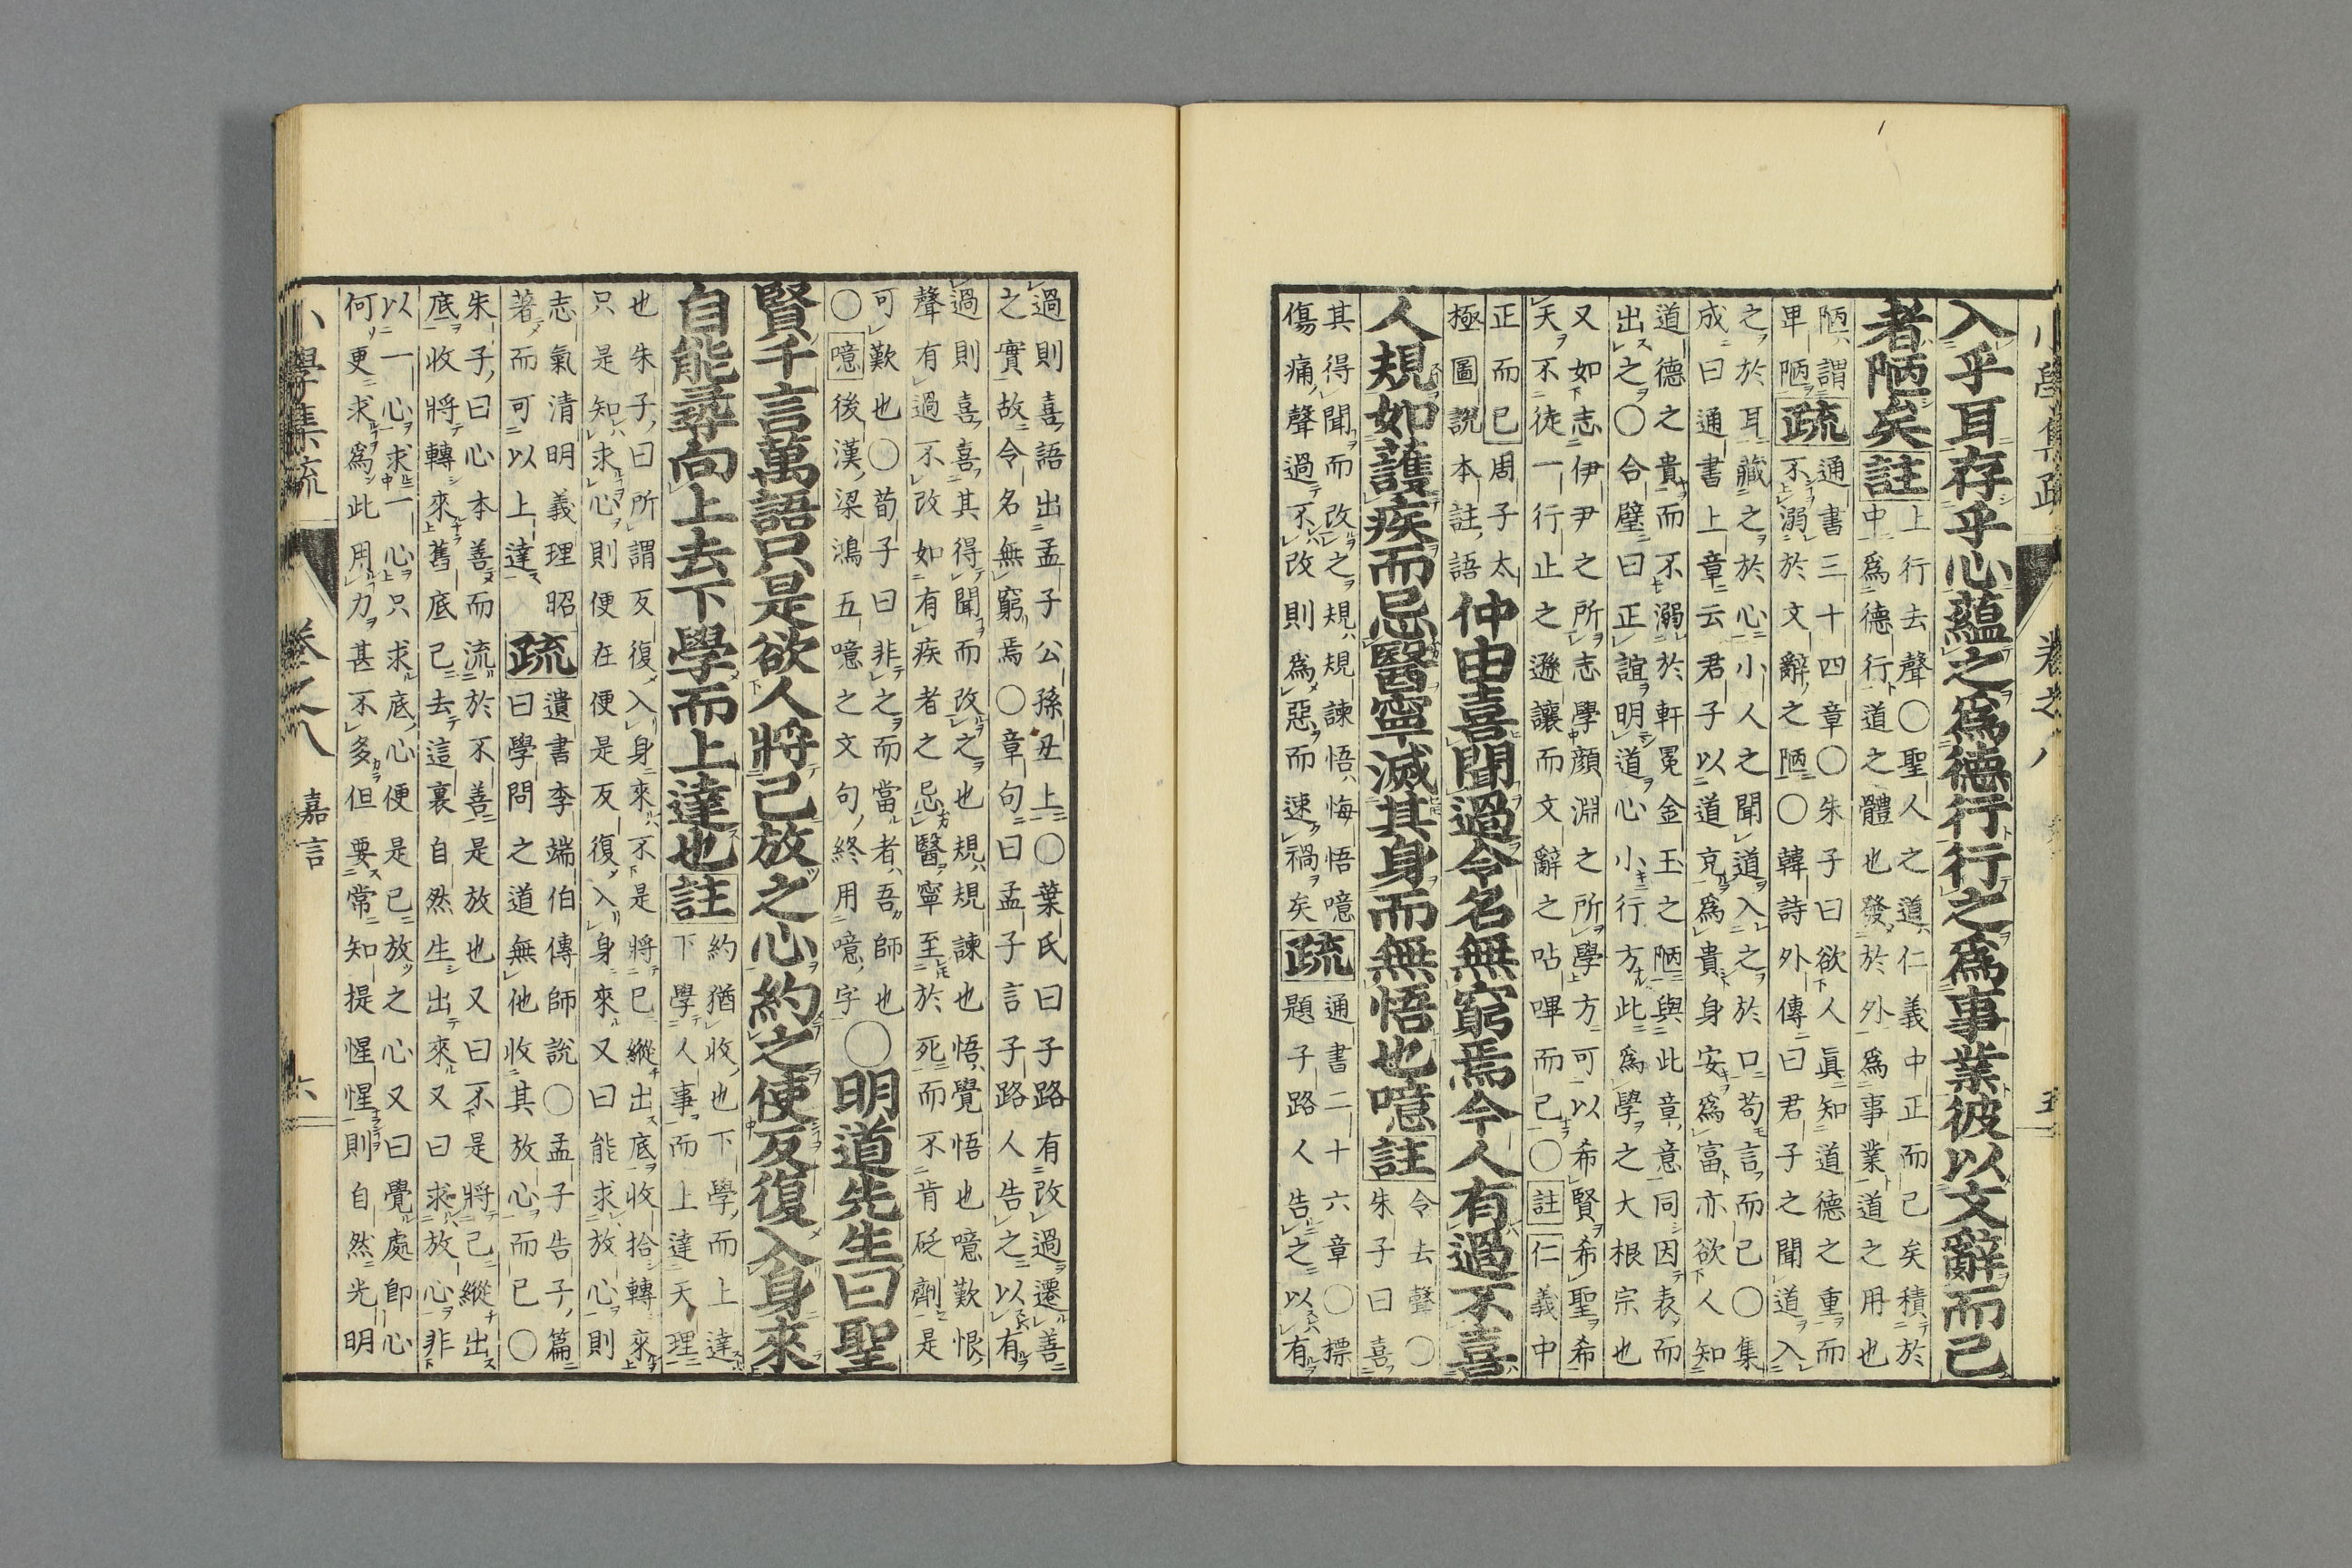 入乎耳存乎心蘊之爲德行行之爲事業彼以文辭而已
者陋矣註上行去聲〇聖人之道仁義中正而已矣積於
中爲德行道之體也發於外爲事業道之用也
陋謂通書三十四章〇朱子曰欲人眞知道德之重而
卑陋疏不溺於文辭之陋〇韓詩外傳曰君子之聞道入
之於耳藏之於心小人之聞道入之於口苟言而已〇集
成曰通書上章云君子以道充爲貴身安爲富亦欲人知
道德之貴而不溺於軒冕金玉之陋與此章意同因表而
出之〇合璧曰正誼明道心小行方此爲學之大根宗也
又如志伊尹之所志學顏淵之所學方可以希賢希聖希
天不徒一行止之遜讓而文辭之呫嗶而已〇註仁義中
正而已周子太
極圖說本註語
仲由喜聞過令名無窮焉今人有過不喜
人規如護疾而忌醫寧滅其身而無悟也噫註令去聲〇
朱子曰喜
其得聞而改之規規諫悟悔悟噫
傷痛聲過不改則爲惡而速禍矣疏通書二十六章〇標
題子路人告之以有
過則喜語出孟子公孫丑上〇葉氏曰子路有改過遷善
之實故令名無窮焉〇章句曰孟子言子路人告之以有
過則喜喜其得聞而改之也規規諫也悟覺悟也噫歎恨
聲有過不改如有疾者之忌醫寧至於死而不肯砭劑是
可歎也〇荀子曰非之而當者吾師也
〇噫後漢梁鴻五噫之文句終用噫字
〇明道先生曰聖
賢千言萬語只是欲人將已放之心約之使反復入身來
自能尋向上去下學而上達也註約猶收也下學而上達
下學人事而上達天理
也朱子曰所謂反復入身來不是將已縱出底收拾轉來
只是知求心則便在便是反復入身來又曰能求放心則
志氣清明義理昭
著而可以上達疏遺書李端伯傳師說〇孟子告子篇
曰學問之道無他收其放心而已〇
朱子曰心本善而流於不善是放也又曰不是將已縱出
底收將轉來舊底已去這裏自然生出來又曰求放心非
以一心求一心只求底心便是已放之心又曰覺處卽心
何更求爲此用力甚不多但要常知提惺惺則自然光明
小學集疏
卷之八
嘉言
六